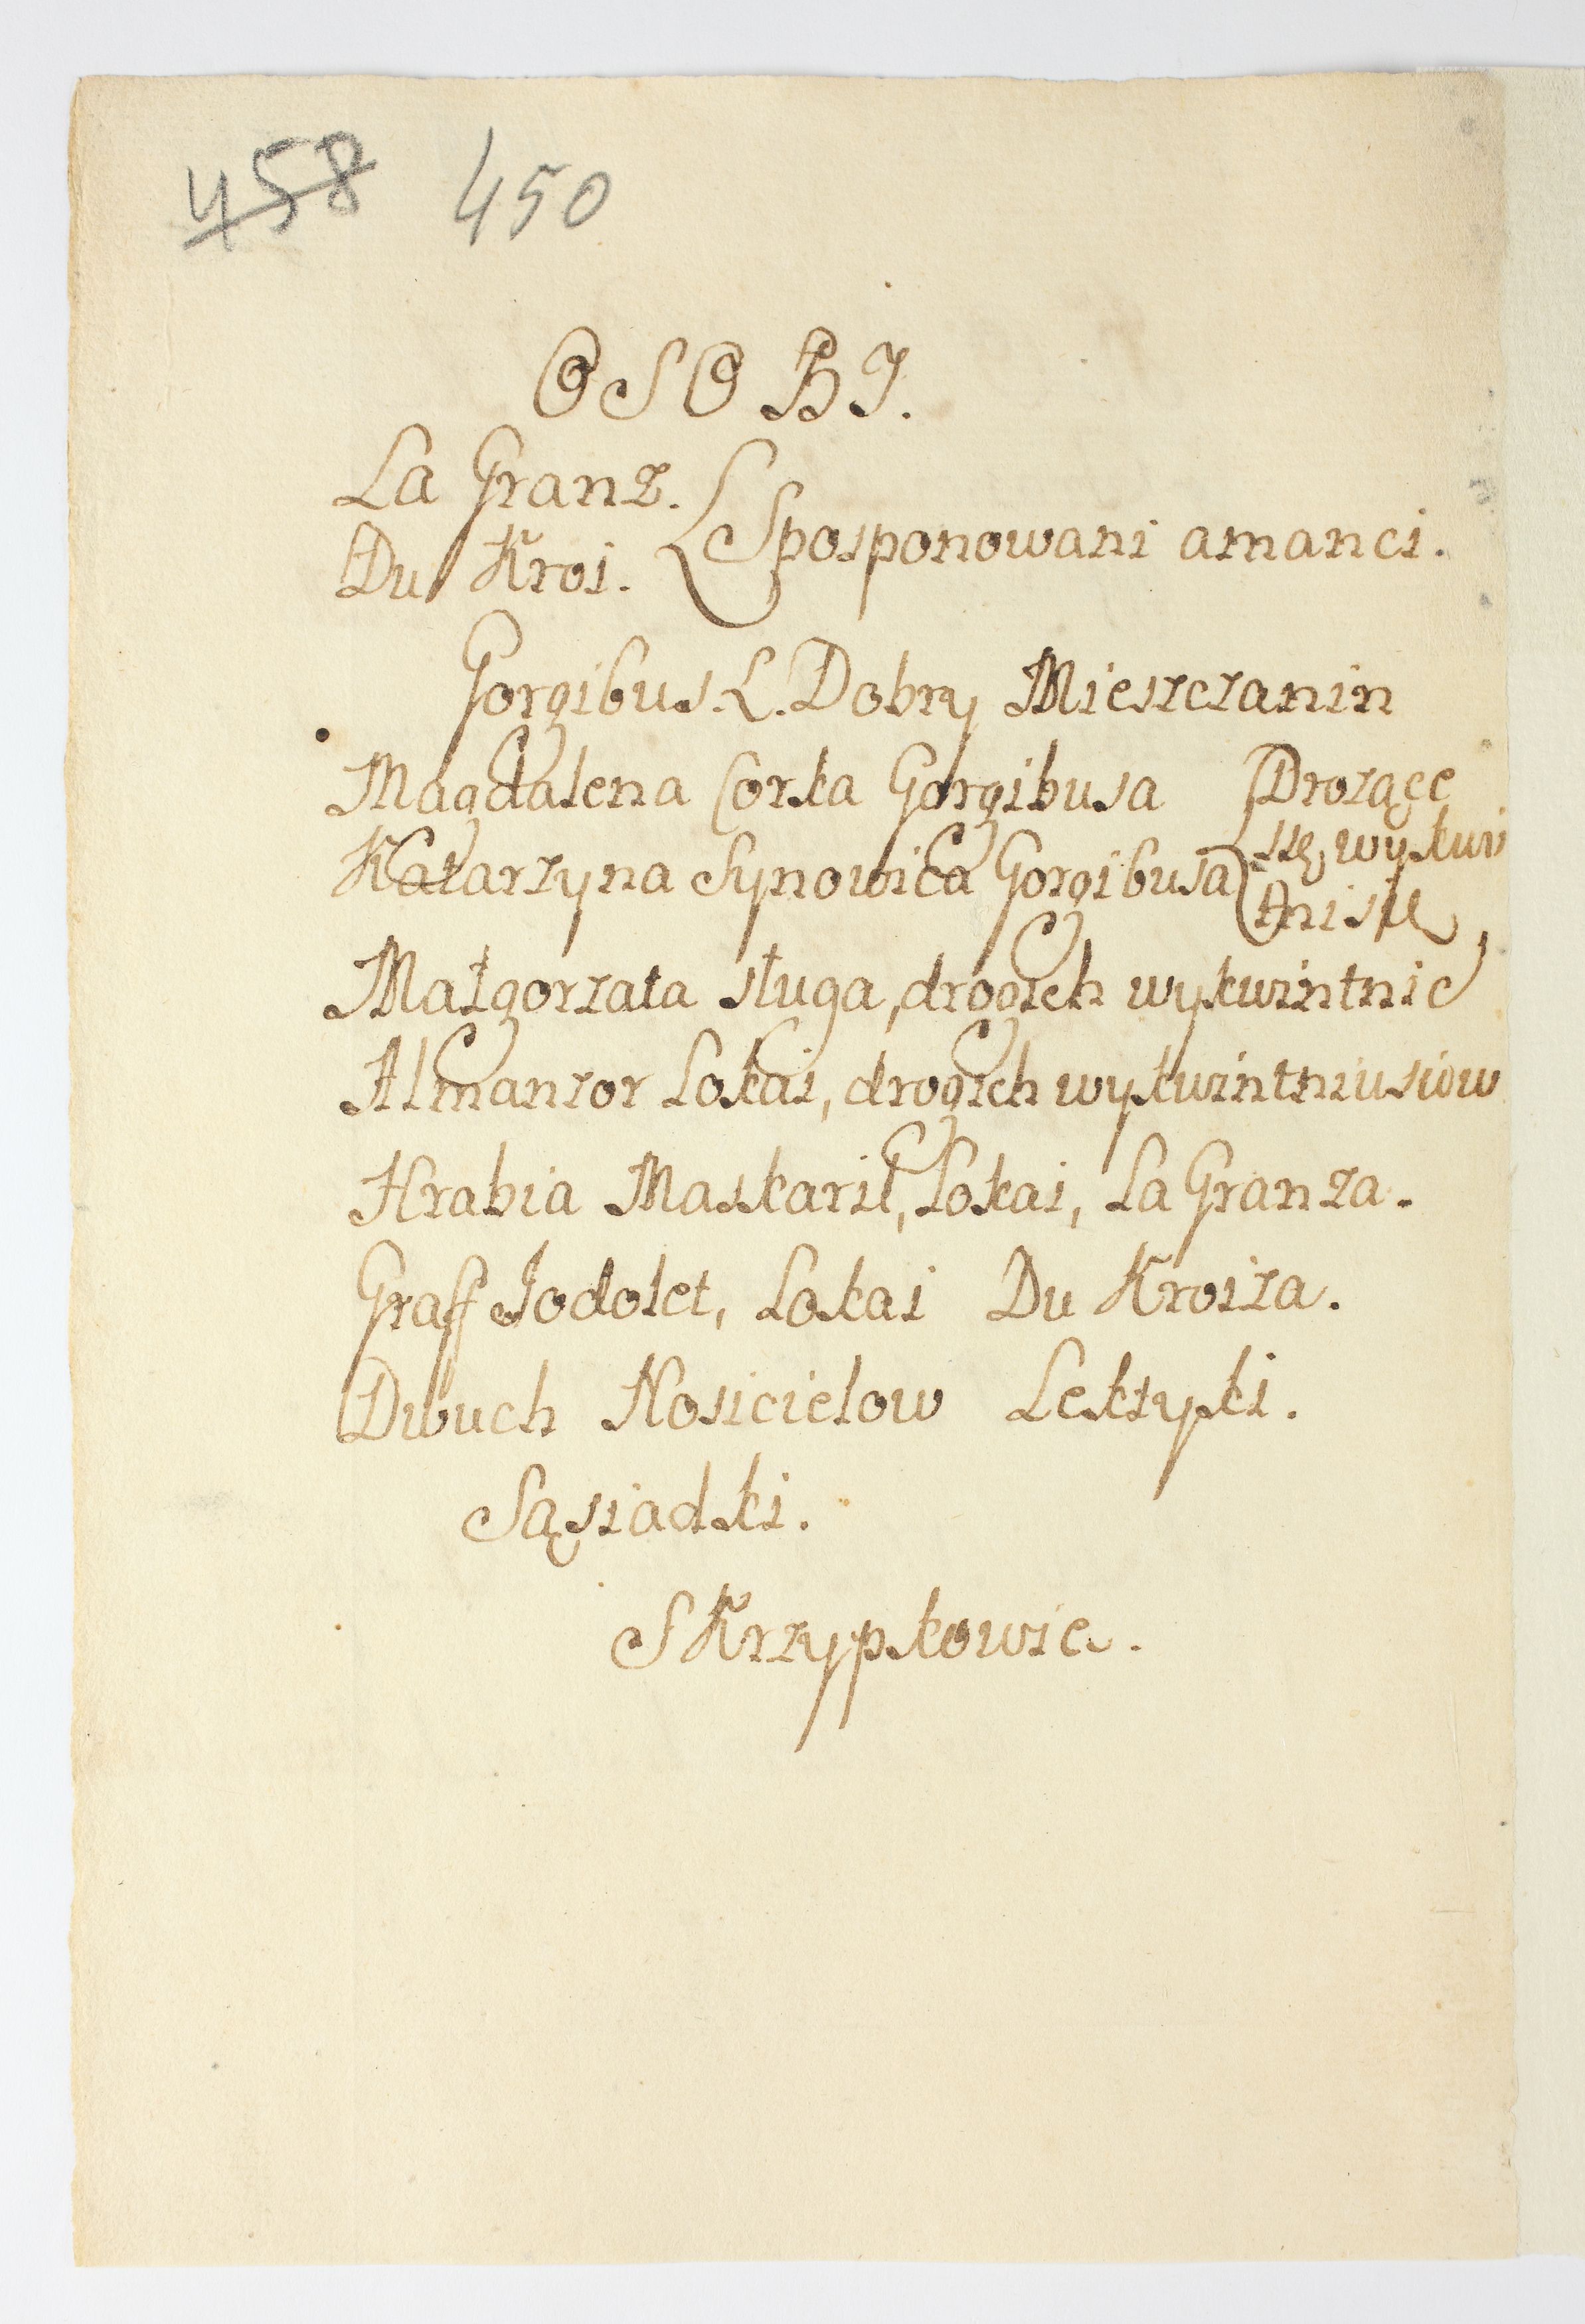 458 450
OSOBJ.
La Granz.
Du Kroi.
Sposponowani amanci.
Gorgibus. L. Dobry Mieszczanin
Magdalena Corka Gorgibusa Drożące
Katarzyna Synowica Gorgibusa
się, wykwi
tnisie
Małgorzata sługa, drogich wykwintniś
Almanzor Lokai, drogich wykwintniusiow
Hrabia Maskaril, Lokai, La Granza.
Graff Jodolet, Lokai Du Kroiza.
Dwuch Nosicielow Lektypki.
Sąsiadki.
SKrzypkowie.